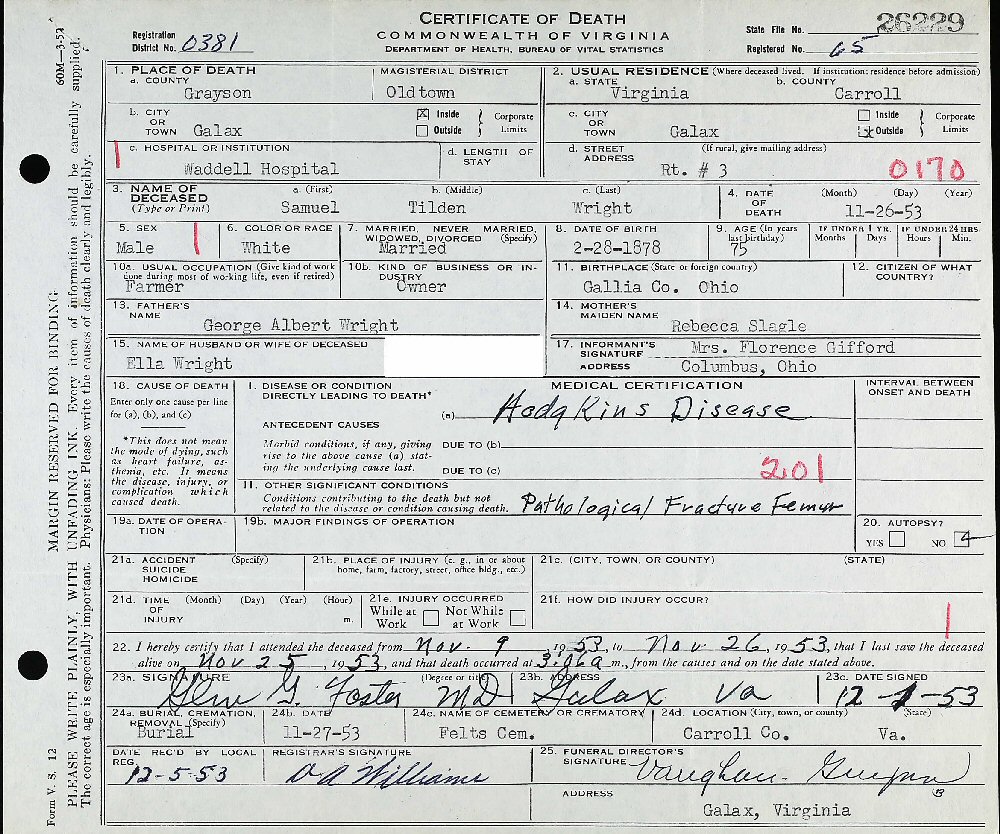 CERTIFICATE OF DEATH
COMMONWEALTH OF VIRGINIA
DEPARTMENT OF HEALTH, BUREAU OF VITAL STATISTICS
Registration District No. 0381
State File No. 26229
Registered No. 65
1. PLACE OF DEATH
a. COUNTY Grayson
MAGISTERIAL DISTRICT Oldtown
2. USUAL RESIDENCE (Where deceased lived. If institution: residence before admission)
a. STATE Virginia
b. COUNTY Carroll
b. CITY OR TOWN Galax
Inside Outside Corporate Limits
c. CITY OR TOWN Galax
Inside Outside Corporate Limits
c. HOSPITAL OR INSTITUTION Waddell Hospital
d. LENGTH OF STAY
d. STREET ADDRESS (If rural, give mailing address) Rt. # 3
0170
3. NAME OF DECEASED (Type or Print)
a. (First) Samuel
b. (Middle) Tilden
c. (Last) Wright
4. DATE OF DEATH (Month) (Day) (Year) 11-26-53
5. SEX Male
6. COLOR OR RACE White
7. MARRIED, NEVER MARRIED, WIDOWED, DIVORCED (Specify) Married
8. DATE OF BIRTH 2-28-1878
9. AGE (In years last birthday) 75
IF UNDER 1 YR. Months Days
IF UNDER 24 HRS. Hours Min.
10a. USUAL OCCUPATION (Give kind of work done during most of working life, even if retired) Farmer
10b. KIND OF BUSINESS OR INDUSTRY Owner
11. BIRTHPLACE (State or foreign country) Gallia Co. Ohio
12. CITIZEN OF WHAT COUNTRY?
13. FATHER'S NAME George Albert Wright
14. MOTHER'S MAIDEN NAME Rebecca Slagle
15. NAME OF HUSBAND OR WIFE OF DECEASED Ella Wright
17. INFORMANT'S SIGNATURE Mrs. Florence Gifford
ADDRESS Columbus, Ohio
18. CAUSE OF DEATH
Enter only one cause per line for (a), (b), and (c)
*This does not mean the mode of dying, such as heart failure, asthenia, etc. It means the disease, injury, or complication which caused death.
MEDICAL CERTIFICATION
INTERVAL BETWEEN ONSET AND DEATH
I. DISEASE OR CONDITION DIRECTLY LEADING TO DEATH*
(a) Hodgkins Disease
ANTECEDENT CAUSES
Morbid conditions, if any, giving rise to the above cause (a) stating the underlying cause last.
DUE TO (b)
DUE TO (c)
201
II. OTHER SIGNIFICANT CONDITIONS
Conditions contributing to the death but not related to the disease or condition causing death.
Pathological Fracture Femur
19a. DATE OF OPERATION
19b. MAJOR FINDINGS OF OPERATION
20. AUTOPSY?
YES NO
21a. ACCIDENT SUICIDE HOMICIDE (Specify)
21b. PLACE OF INJURY (e. g., in or about home, farm, factory, street, office bldg., etc.)
21c. (CITY, TOWN, OR COUNTY) (STATE)
21d. TIME OF INJURY (Month) (Day) (Year) (Hour) m.
21e. INJURY OCCURRED
While at Work Not While at Work
21f. HOW DID INJURY OCCUR?
22. I hereby certify that I attended the deceased from Nov. 9, 1953, to Nov 26, 1953, that I last saw the deceased
alive on Nov 25, 1953, and that death occurred at 3:06a m., from the causes and on the date stated above.
23a. SIGNATURE (Degree or title) Glenn G. Foster MD
23b. ADDRESS Galax Va
23c. DATE SIGNED 12-1-53
24a. BURIAL, CREMATION, REMOVAL (Specify) Burial
24b. DATE 11-27-53
24c. NAME OF CEMETERY OR CREMATORY Felts Cem.
24d. LOCATION (City, town, or county) (State) Carroll Co. Va.
DATE REC'D BY LOCAL REG. 12-5-53
REGISTRAR'S SIGNATURE Williams
25. FUNERAL DIRECTOR'S SIGNATURE Vaughan-Guynn
ADDRESS Galax, Virginia
60M-3-52
MARGIN RESERVED FOR BINDING
PLEASE WRITE PLAINLY, WITH UNFADING INK. Every item of information should be carefully supplied.
The correct age is especially important. Physicians: Please write the causes of death clearly and legibly.
Form V. S. 12